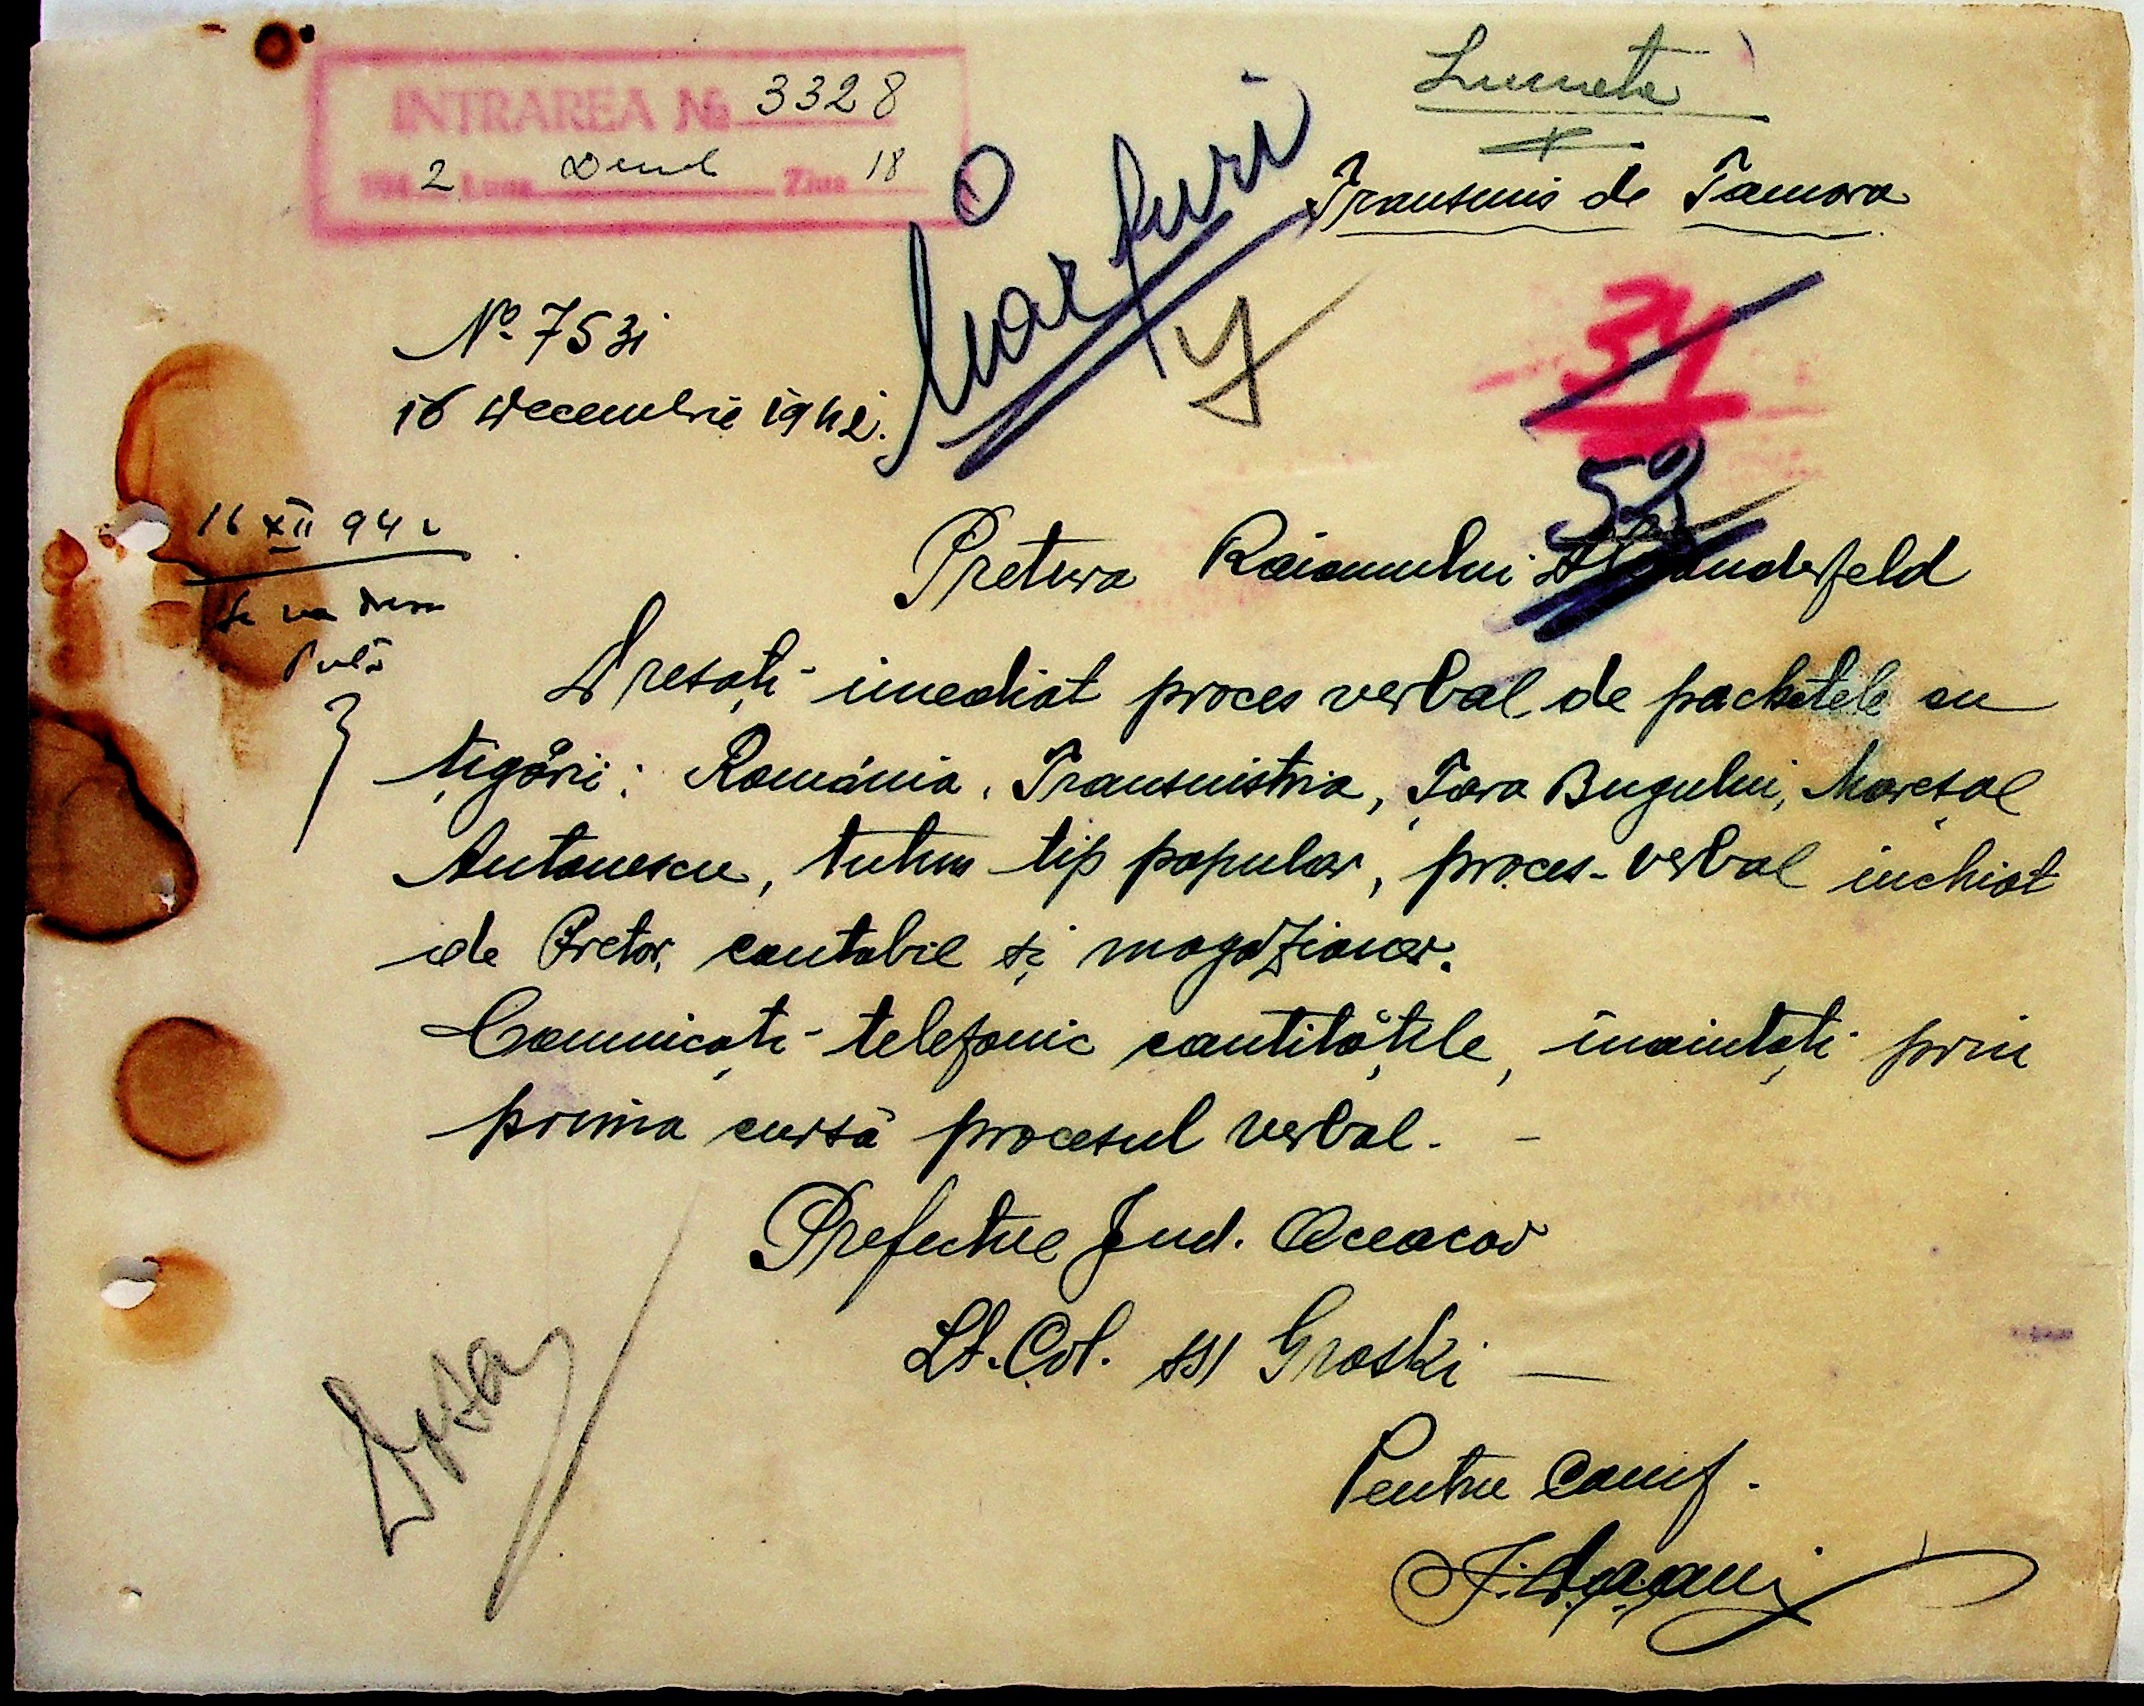 INTRAREA № 3328
194 2 Luna Decb Ziua 18
Mărfuri
Transmis de Tamara
31
No. 7531
16 Decembrie 1942.
52
16 XII 942
Se va
Pretura Raionului
Dresați imediat proces verbal de pachetele cu
țigări: România, Transnistria, Țara Bugului, Mareșal
Antonescu, tutun tip popular, proces-verbal închiat
de Pretor, contabil și magazioner.
Comunicați telefonic cantitățile, înaintați prin
prima cursă procesul verbal. -
Prefectul Jud. Oceacov
Lt. Col. ss/ Groski —
Pentru conf.